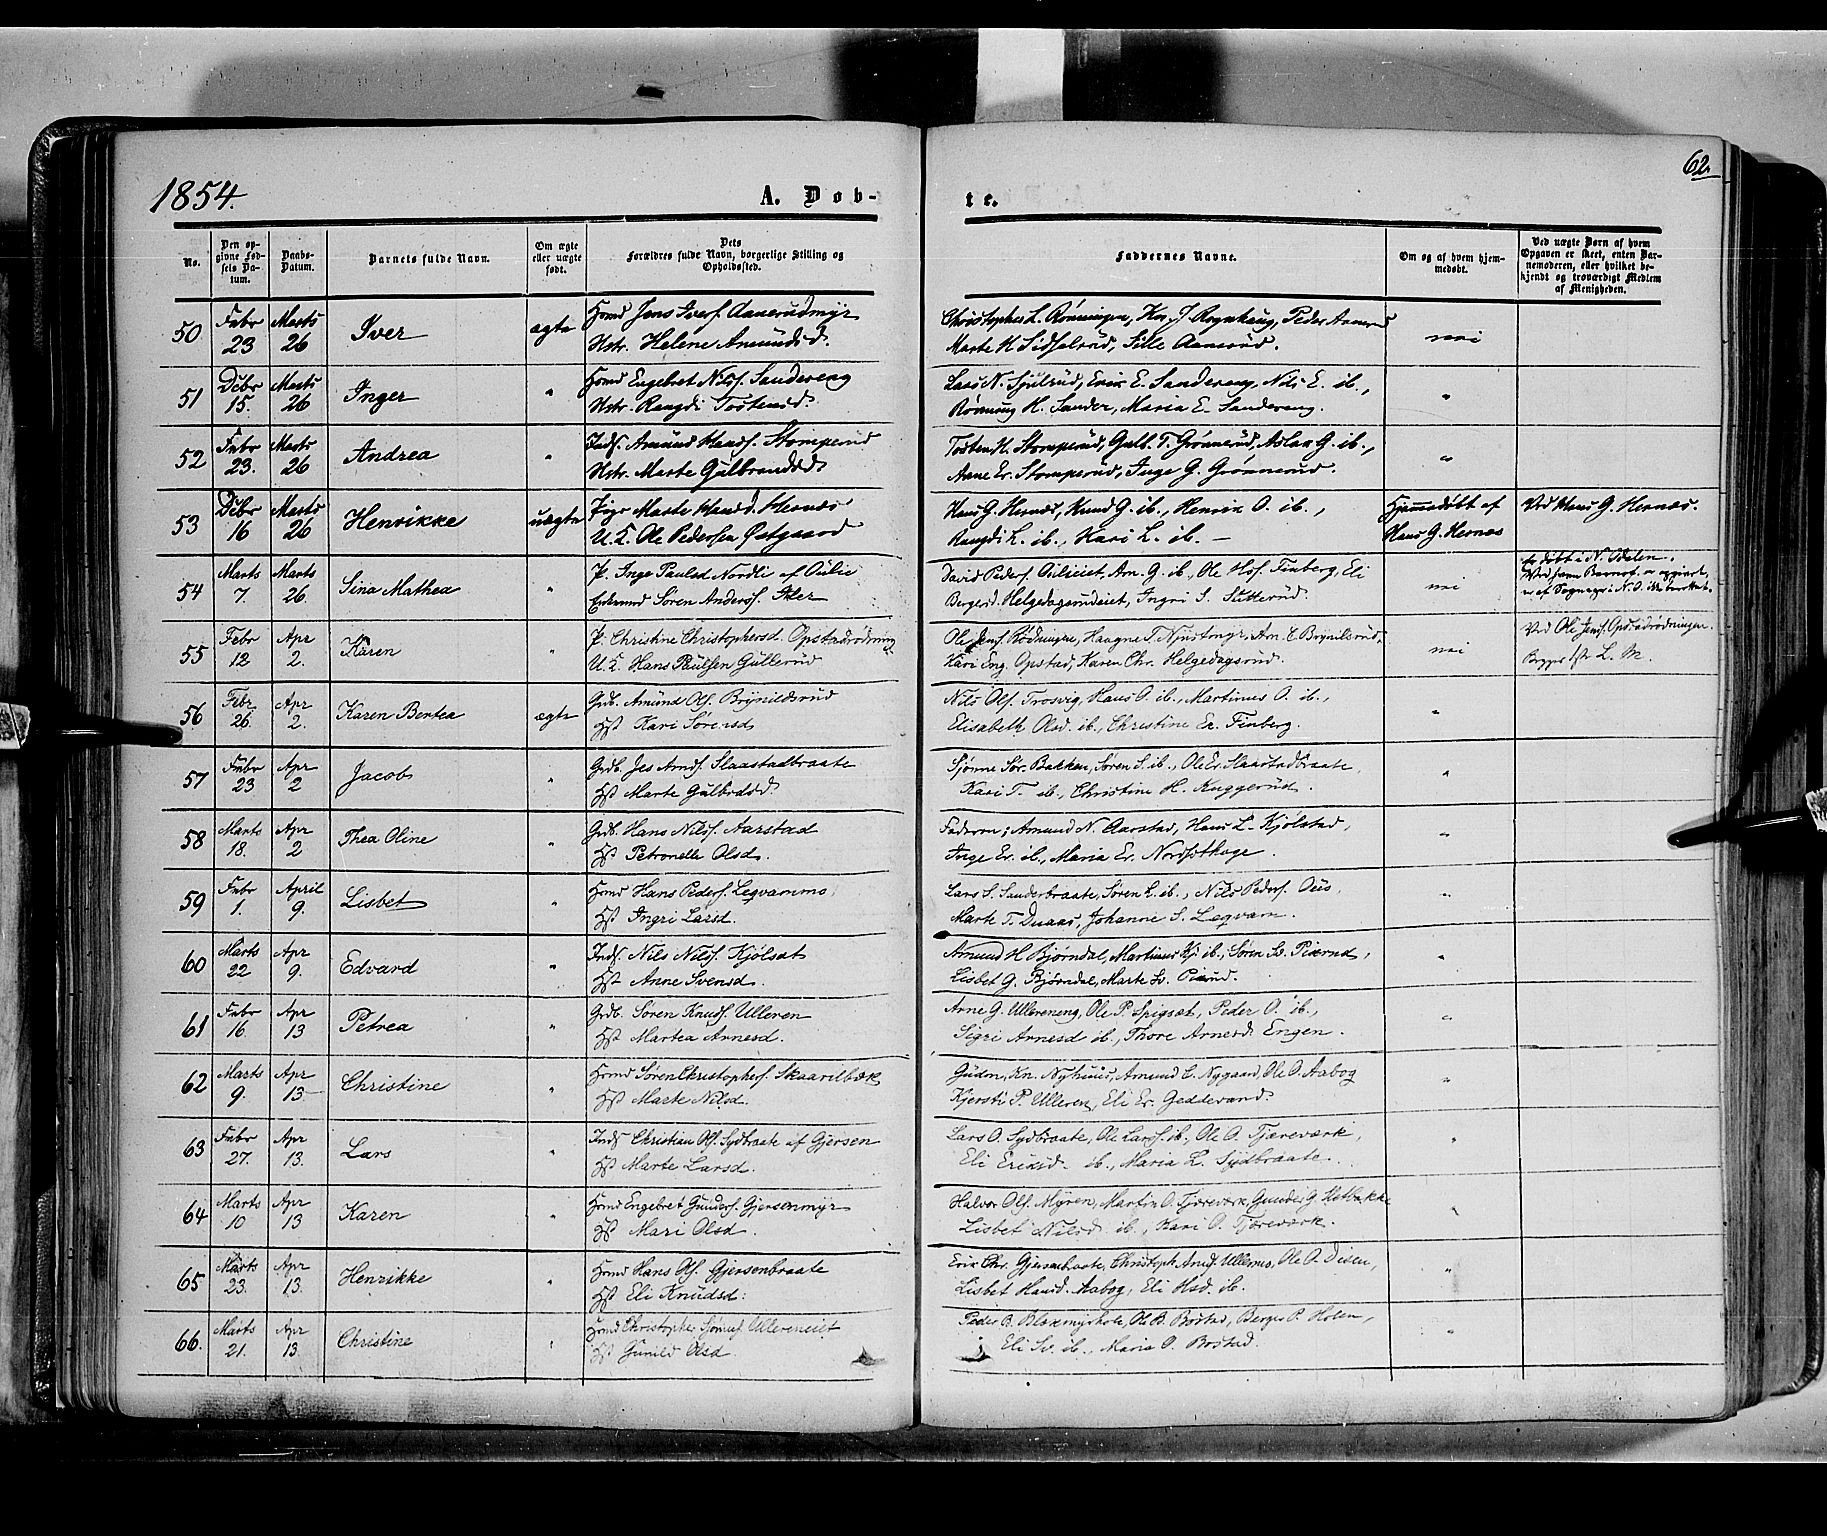 62.
1854.
A. Døb-
te.
No.
Den opgivne Fødsels Datum.
Daabs-Datum.
Barnets fulde Navn.
Om ægte eller uægte født.
Dets Forældres fulde Navn, borgerlige Stilling og Opholdssted.
Faddernes Navne.
Om og af hvem hjemmedøbt.
Ved uægte Børn af hvem Opgaven er skeet, enten Barnemoderen, eller hvilket bekjendt og troværdigt Medlem af Menigheden.
50 Febr 23 Marts 26 Iver ægte
Hmd Jens Ivers. Aanerudmyr
Hstr. Helene Amunds d.
Christopher L. Rønningen, J. Peder
Marte H. Sidselrud, Sille Aanerud.
nei
51 Debr 15. Marts 26 Inger "
Hmd Engebret Nils. Sandereng
Hstr. Rangdi Tostensd.
Lars N. Sjulsrud, Erik E. Sandereng, Nils E. ib.,
Rønnug H. Sander, Maria E. Sandereng.
"
52 Febr 23. Marts 26 Andrea "
Inds. Amund Hans. Stomperud
Hstr. Marte Gulbrandsd
Tosten H. Stomperud, Gulb. T. Grønnerud, Aslak G. ib.,
Anne Er. Stomperud, Inge G. Grønnerud.
"
53 Debr 16 Marts 26 Henrikke uægte
Pige Marte Hansd. Hernæs
U. K. Ole Pedersen Østgaard
Hans G. Hernæs, Knud G. ib., Henrik O. ib.,
Rangdi L. ib., Kari L. ib. —
Hjemmedøbt af Hans G. Hernæs
Ved Hans G. Hernæs.
54 Marts 7. Marts 26. Sina Mathea "
P. Inge Paulsd Nordli af Oulie
Søren Anders.
David Peders. Am. G. ib., Ole Hs. Finberg, Eli
Bergersd. Helgedagsrudeiet, Ingri S. Sutterud.
nei
døbt i N. Odalen.
55 Febr 12 Apr 2. Karen "
P. Christine Christophersd. Opstadrødning
U. K. Hans Paulsen Gullerud
Ole Jens. Rødningen, Haagne T. Am. C. Brynilsrud,
Kari Eng. Opstad, Karen Chr. Helgedagsrud.
nei
Ved Ole Jens. Opstadrødningen.
56 Febr 26. Apr 2. Karen Bertea ægte
Grdb. Amund Ols. Brynildsrud
Hst Kari Sørensd
Nils Ols. Trosvig, Hans O. ib., Martinus O. ib.,
Elisabeth Olsd. ib., Christine Er. Finberg.
"
57 Febr 23 Apr 2 Jacob "
Grdb. Jes Arnds. Slaastadbraate
Hst Marte Gulbrdsd.
Sjønne Sør. Bakken, Søren S. ib., Ole Er. Slaastadbraate,
Kari T. ib., Christine H. Kuggerud.
"
58 Marts 18. Apr 2 Thea Oline "
Grdb. Hans Nils. Aarstad
Hst Petronelle Olsd.
Faderen; Amund N. Aarstad, Hans L. Kjølstad,
Inge Er. ib., Maria Er. Nordsthage.
"
59 Febr 1. April 9. Lisbet "
Hmd Hans Peders. Legvammo.
Hst Ingri Larsd.
Lars S. Sanderbraate, Søren L. ib., Nils Peders. Ous,
Marte T. Duaas, Johanne S. Legvam.
"
60 Marts 22 Apr 9. Edvard "
Inds. Nils Nils. Kjølsæt
Hst Anne Svensd.
Amund H Bjørndal, Martinus Kj ib., Søren Sv. Pierud,
Lisbet G. Bjørndal, Marte Sv. Pierud.
"
61 Febr 16. Apr 13 Petrea "
Grdb. Søren Knuds. Ulleren
Hst Martea Arnesd.
Arne G. Ullereneng, Ole P. Spigset, Peder O. ib.,
Sigri Arnesd ib., Thore Arnesd. Engen.
"
62 Marts 9. Apr 13 Christine "
Hmd Søren Christophers. Skaarilbæk
Hst Marte Nilsd.
Gudm. Kn. Nyhuus, Amund C. Nygaard, Ole O. Aabog
Kjersti P. Ulleren, Eli Er. Geddevand.
"
63 Febr 27. Apr 13. Lars "
Inds Christian Ols. Sydbraate af Gjersen
Hst Marte Larsd.
Lars O. Sydbraate, Ole Lars. ib., Ole O. Tjæreværk,
Eli Eriksd. ib., Maria L. Sydbraate.
"
64 Marts 10 Apr 13 Karen "
Hmd Engebret Gunders. Gjersenmyr
Hst Mari Olsd.
Halvor Ols. Myren, Martin O. Tjæreværk, Gunder G. Hetbakke
Lisbet Nilsd ib., Kari O. Tjæreværk.
"
65 Marts 23. Apr 13. Henrikke "
Hmd Hans Ols. Gjersenbraate
Hst Eli Knudsd.
Erik Chr. Gjersenbraate, Christoph. Ullern, Ole O. Disen,
Lisbet Hansd. Aabog, Eli Hsd. ib.
"
66. Marts 21. Apr 13. Christine "
Hmd Christopher Ullereneiet
Hst Gunild Olsd
Peder B. Blaxmyrhole, Ole B. Bostad, Berger P. Holen,
Eli Sv. ib., Maria O. Bostad.
"